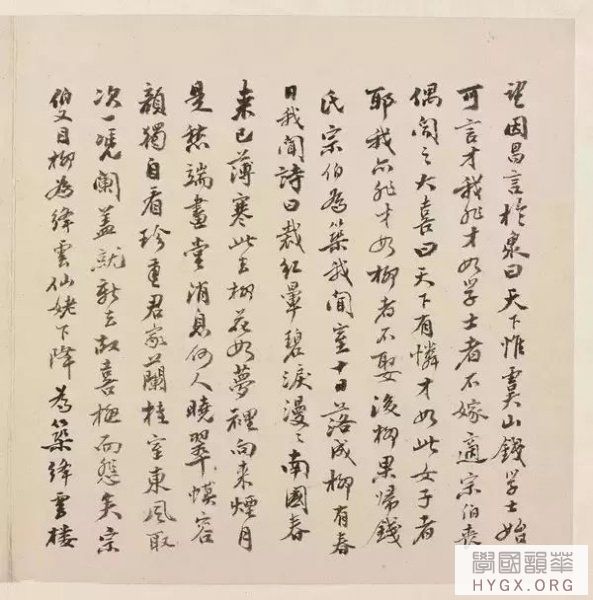 望因昌言於衆曰天下惟虞山錢學士始
可言才我非才如學士者不嫁適宗伯喪
偶聞之大喜曰天下有憐才如此女子者
耶我亦非才如柳者不娶後柳果歸錢
氏宗伯為築我聞室十日落成柳有春
日我聞詩曰裁紅暈碧淚漫〻南國春
來已薄寒此去柳花如夢裡向來煙月
是愁端畫堂消息何人曉翠幙容
顏獨自看珍重君家蘭桂室東風取
次一憑闌蓋就新去故喜極而矣宗
伯又目柳為絳雲仙姥下降為築絳雲樓
華韻國學
HYGX.ORG